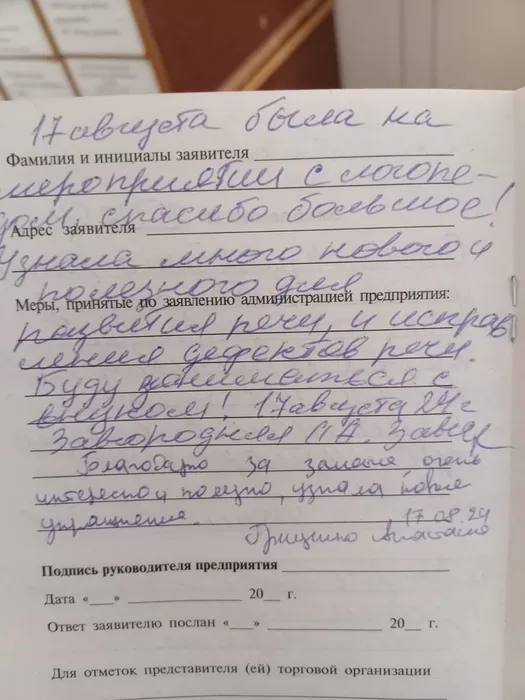 17 августа была на
Фамилия и инициалы заявителя
мероприятии с логопе-
дом, спасибо большое!
Адрес заявителя
Узнала много нового и
полезного для
Меры, принятые по заявлению администрацией предприятия:
развития речи, и исправ
ления дефектов речи.
Буду заниматься с
внуком! 17 августа 24 г
Завгородняя
Благодарю за занятие, очень
интересно и полезно, узнала новые
упражнения.
17.08.24
Анастасия
Подпись руководителя предприятия
Дата «___» 20__ г.
Ответ заявителю послан «___» 20__ г.
Для отметок представителя (ей) торговой организации